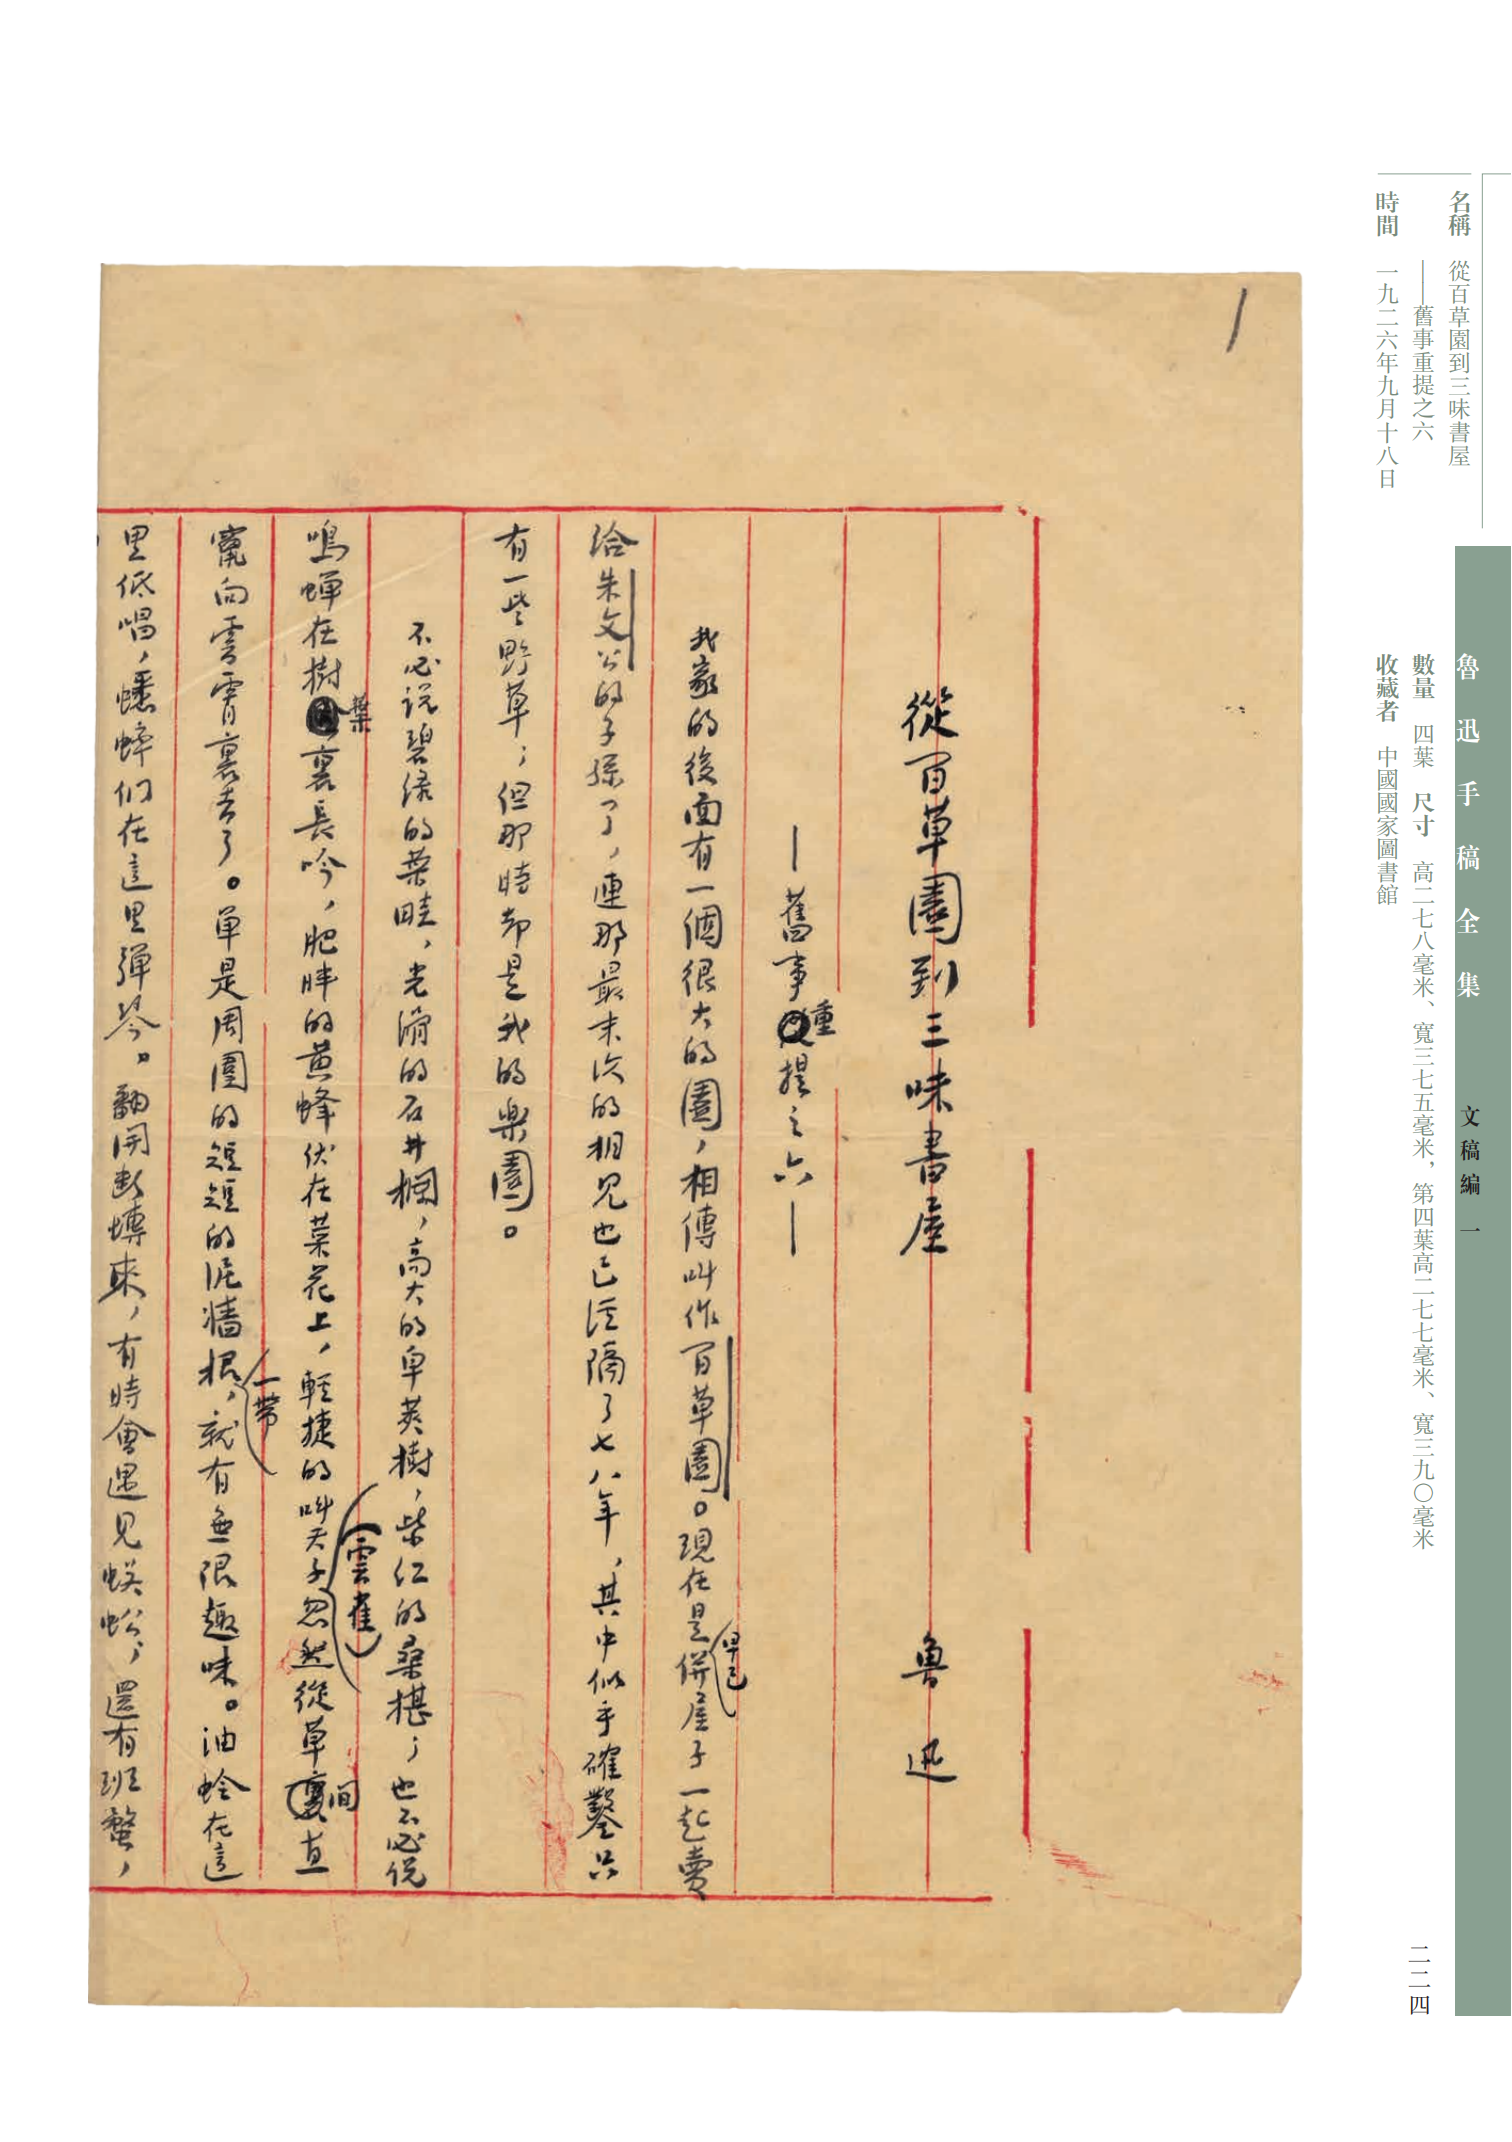 名稱　從百草園到三味書屋
——舊事重提之六
時間　一九二六年九月十八日
魯迅手稿全集　文稿編　一
數量　四葉　尺寸　高二七八毫米、寬三七五毫米，第四葉高二七七毫米、寬三九〇毫米
收藏者　中國國家圖書館
二二四
1
從百草園到三味書屋　魯迅
—舊事重提之六—
我家的後面有一個很大的園，相傳叫作百草園。現在是早已併屋子一起賣
給朱文公的子孫了，連那最末次的相見也已經隔了七八年，其中似乎確鑿只
有一些野草；但那時却是我的樂園。
不必说碧绿的菜畦，光滑的石井欄，高大的皁莢樹，紫红的桑椹；也不必说
鳴蟬在樹葉裏長吟，肥胖的黄蜂伏在菜花上，輕捷的叫天子（雲雀）忽然從草間直
竄向雲霄裏去了。单是周圍的短短的泥牆根一帶，就有無限趣味。油蛉在這
里低唱，蟋蟀们在這里彈琴。翻開斷塼來，有時會遇見蜈蚣；還有班蝥，